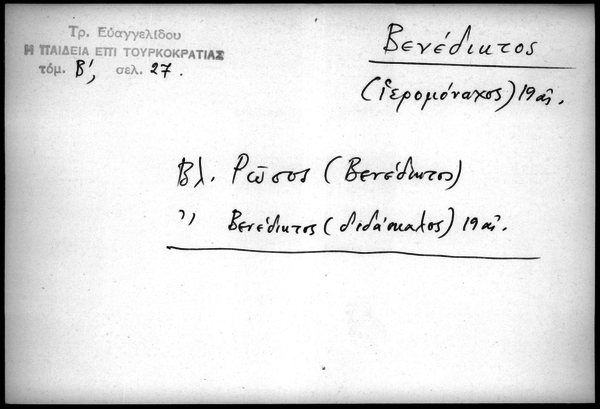 Τρ. Εὐαγγελίδου
Η ΠΑΙΔΕΙΑ ΕΠΙ ΤΟΥΡΚΟΚΡΑΤΙΑΣ
τόμ. Β', σελ. 27.
Βενέδικτος
(ἱερομόναχος) 19 αἰ.
Βλ. Ρῶσος (Βενέδικτος)
,, Βενέδικτος (διδάσκαλος) 19 αἰ.